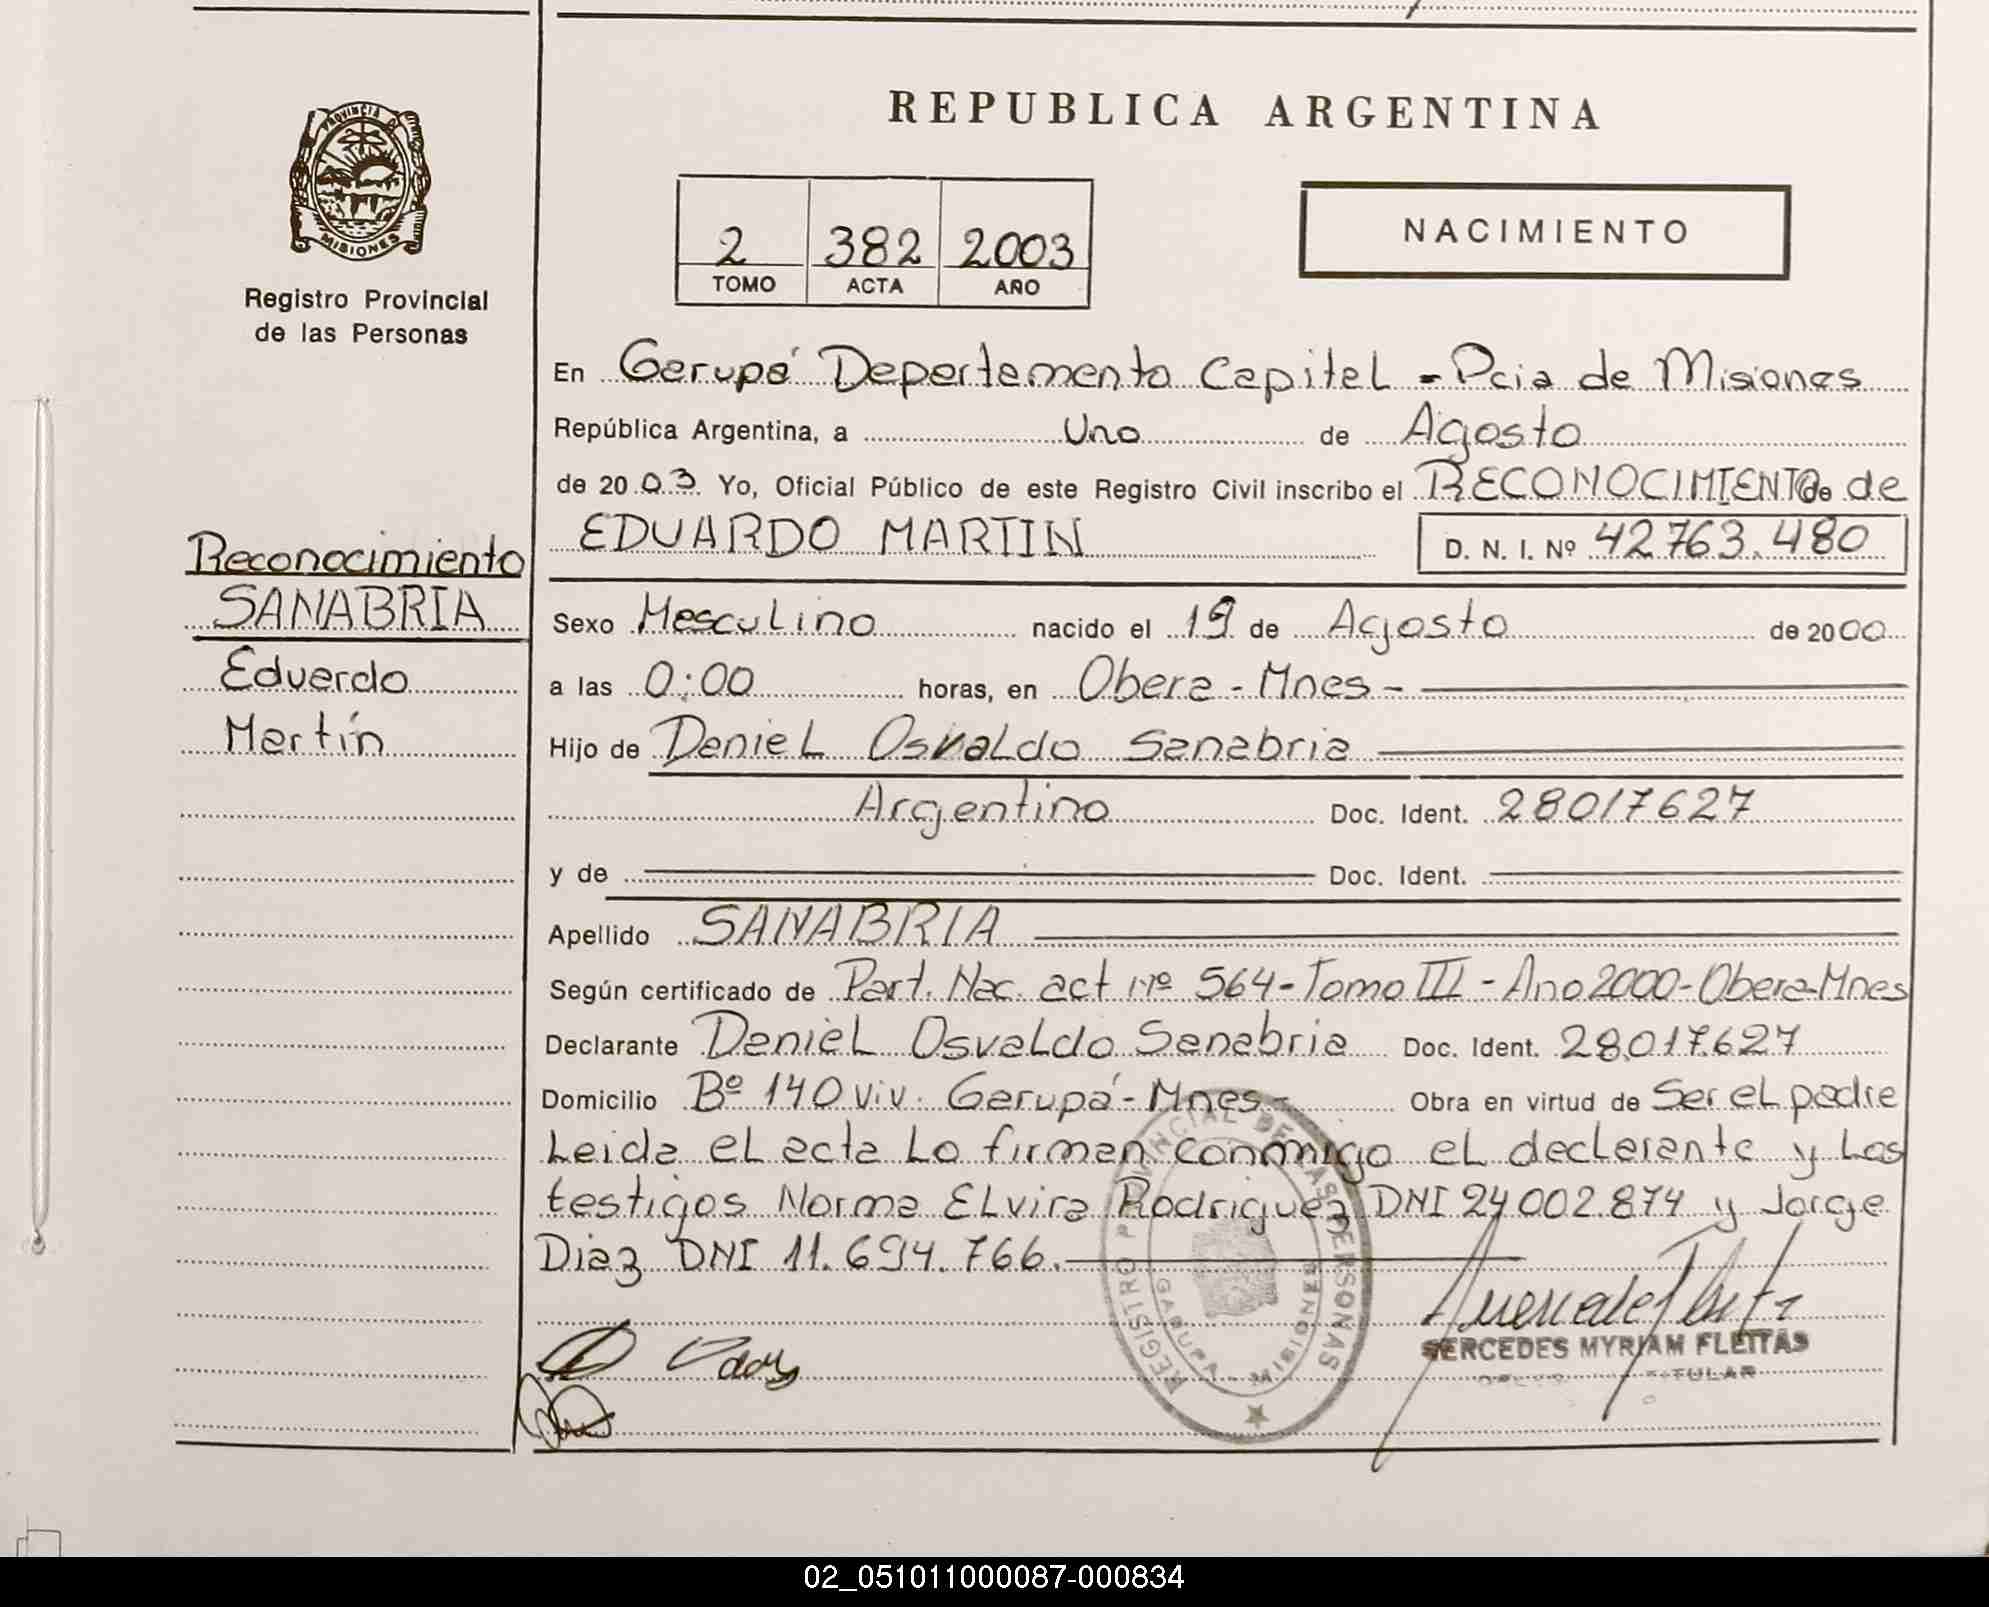 REPUBLICA ARGENTINA
PROVINCIA D MISIONES
Registro Provincial
de las Personas
2 382 2003
TOMO ACTA AÑO
NACIMIENTO
En Garupá Departamento Capital - Pcia de Misiones
República Argentina, a Uno de Agosto
de 2003. Yo, Oficial Público de este Registro Civil inscribo el RECONOCIMIENTO de de
EDUARDO MARTIN D. N. I. Nº 42.763.480
Reconocimiento
SANABRIA
Eduardo
Martín
Sexo Masculino nacido el 19 de Agosto de 2000
a las 0:00 horas, en Obera - Mnes -
Hijo de Daniel Osvaldo Sanabria
Argentino Doc. Ident. 28017627
y de Doc. Ident.
Apellido SANABRIA
Según certificado de Part. Nac. act Nº 564 - Tomo III - Ano 2000 - Obera - Mnes
Declarante Daniel Osvaldo Sanabria Doc. Ident. 28.017.627
Domicilio Bº 140 viv. Garupá - Mnes - Obra en virtud de Ser el padre
Leida el acta Lo firman conmigo el declarante y Los
testigos Norma Elvira Rodriguez DNI 24.002.874 y Jorge
Diaz DNI 11.694.766.
REGISTRO PROVINCIAL DE LAS PERSONAS
GARUPA - MISIONES
MERCEDES MYRIAM FLEITAS
TITULAR
02_051011000087-000834